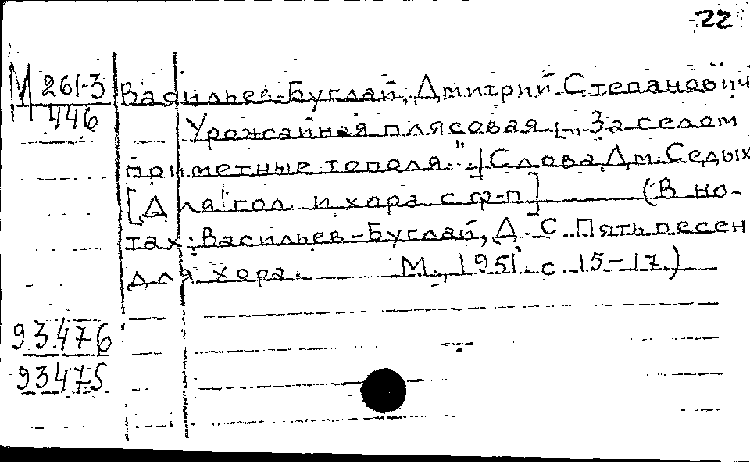 22
М 261-3
446
Васильев-Буглай, Дмитрий Степанович
Урожайная плясовая „За селом
приметные тополя." | Слова Дм. Седых
[Для гол. и хора с ф-п] (В но-
тах: Васильев-Буглай, Д. С. Пять песен
для хора. М., 1951. с. 15-17.)
93476
93475